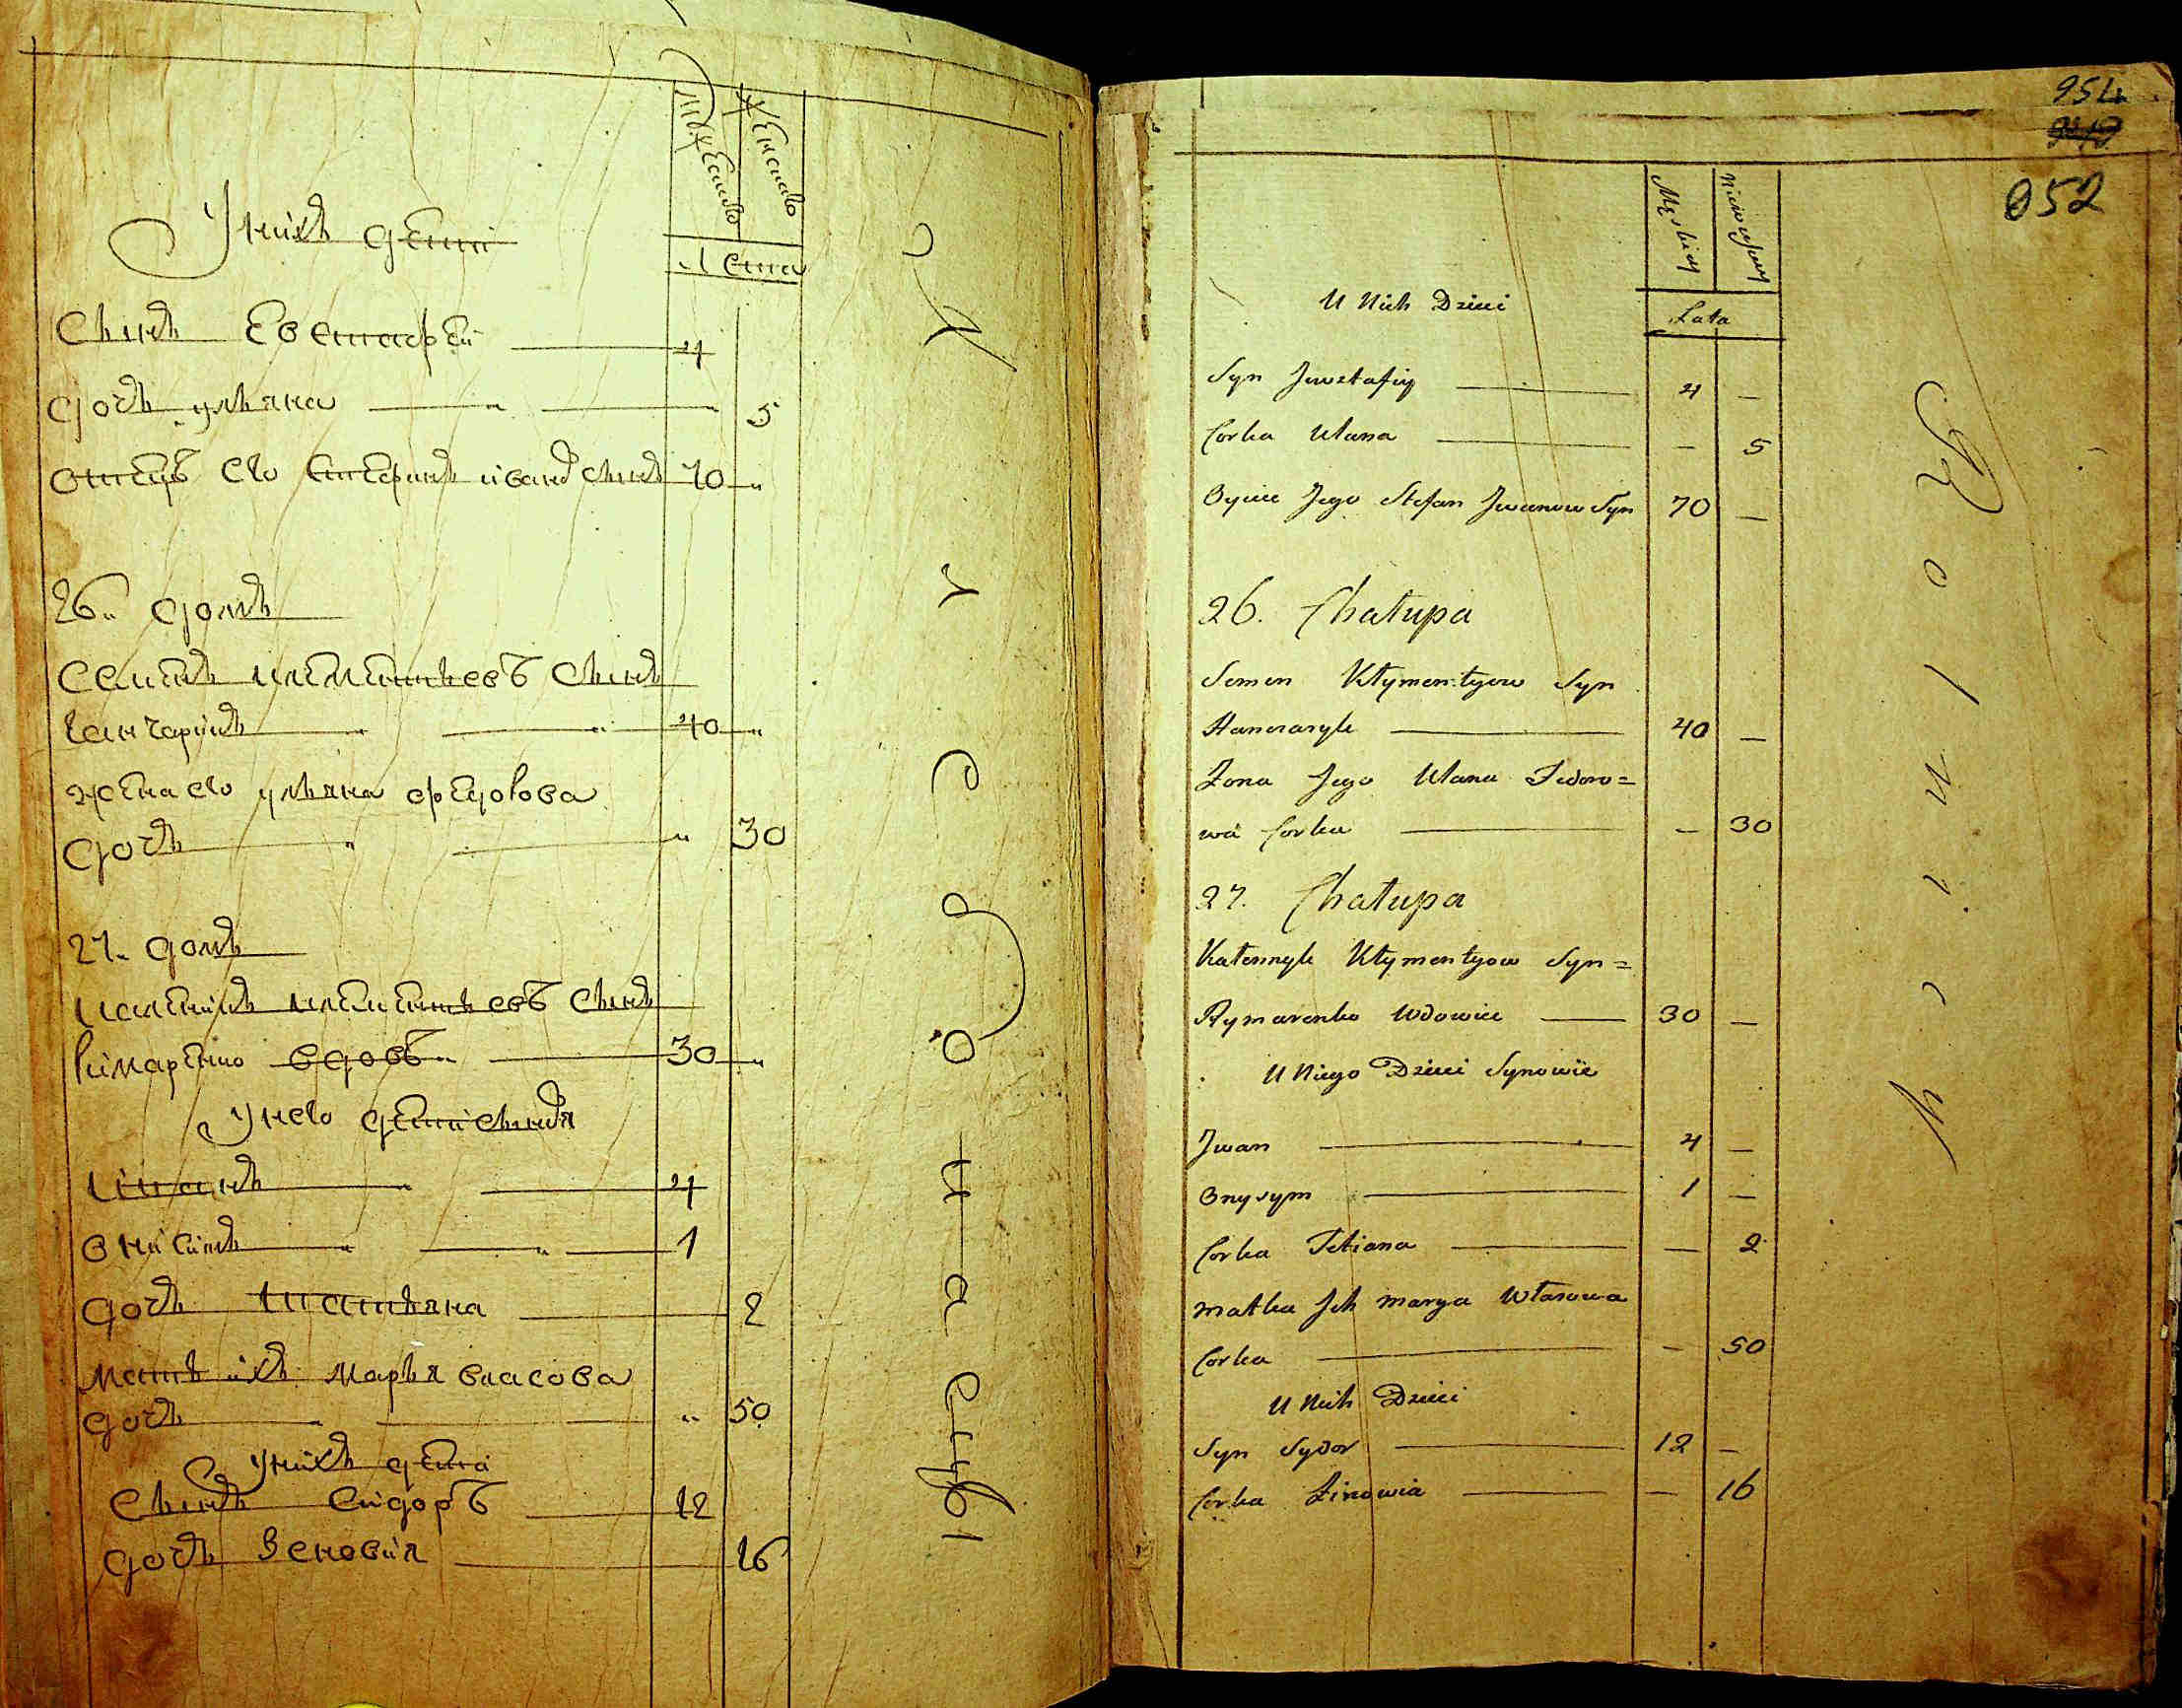 Мужеска
Женска
Лета
У нихъ дети
Сынъ Евстафей 4
Дочь ульяна 5
отецъ его Стефанъ ивановъ сынъ 70
26. домъ
Семенъ климентьевъ сынъ
ганчарикъ 40
жена его ульяна федорова
Дочь 30
27. домъ
климентьевъ сынъ
Римаренко вдовъ 30
У него дети сыновя
4
Онисимъ 1
Дочь Татьяна 2
мать ихъ марья власова
дочь 50
У нихъ дети
Сынъ Сидоръ 12
дочь Зеновия 16
954
052
Męskiey
Lata
U Nich Dzieci
Syn Jewstafiy 4 —
Corka Ulana — 5
Oyciec Jego Stefan Jwanow Syn 70 —
26. Chałupa
Semen Kłymentyow Syn
Hanczaryk 40 —
Żona Jego Ulana Fedoro=
wa Corka — 30
27. Chałupa
Kłymentyow Syn=
Rymarenko Wdowiec 30 —
U Niego Dzieci Synowie
Jwan 4 —
Onysym 1 —
Corka Tetiana — 2
Matka Jch Marya Własowa
Corka — 50
U Nich Dzieci
Syn Sydor 12 —
Corka Zinowia — 16
Rolnicy